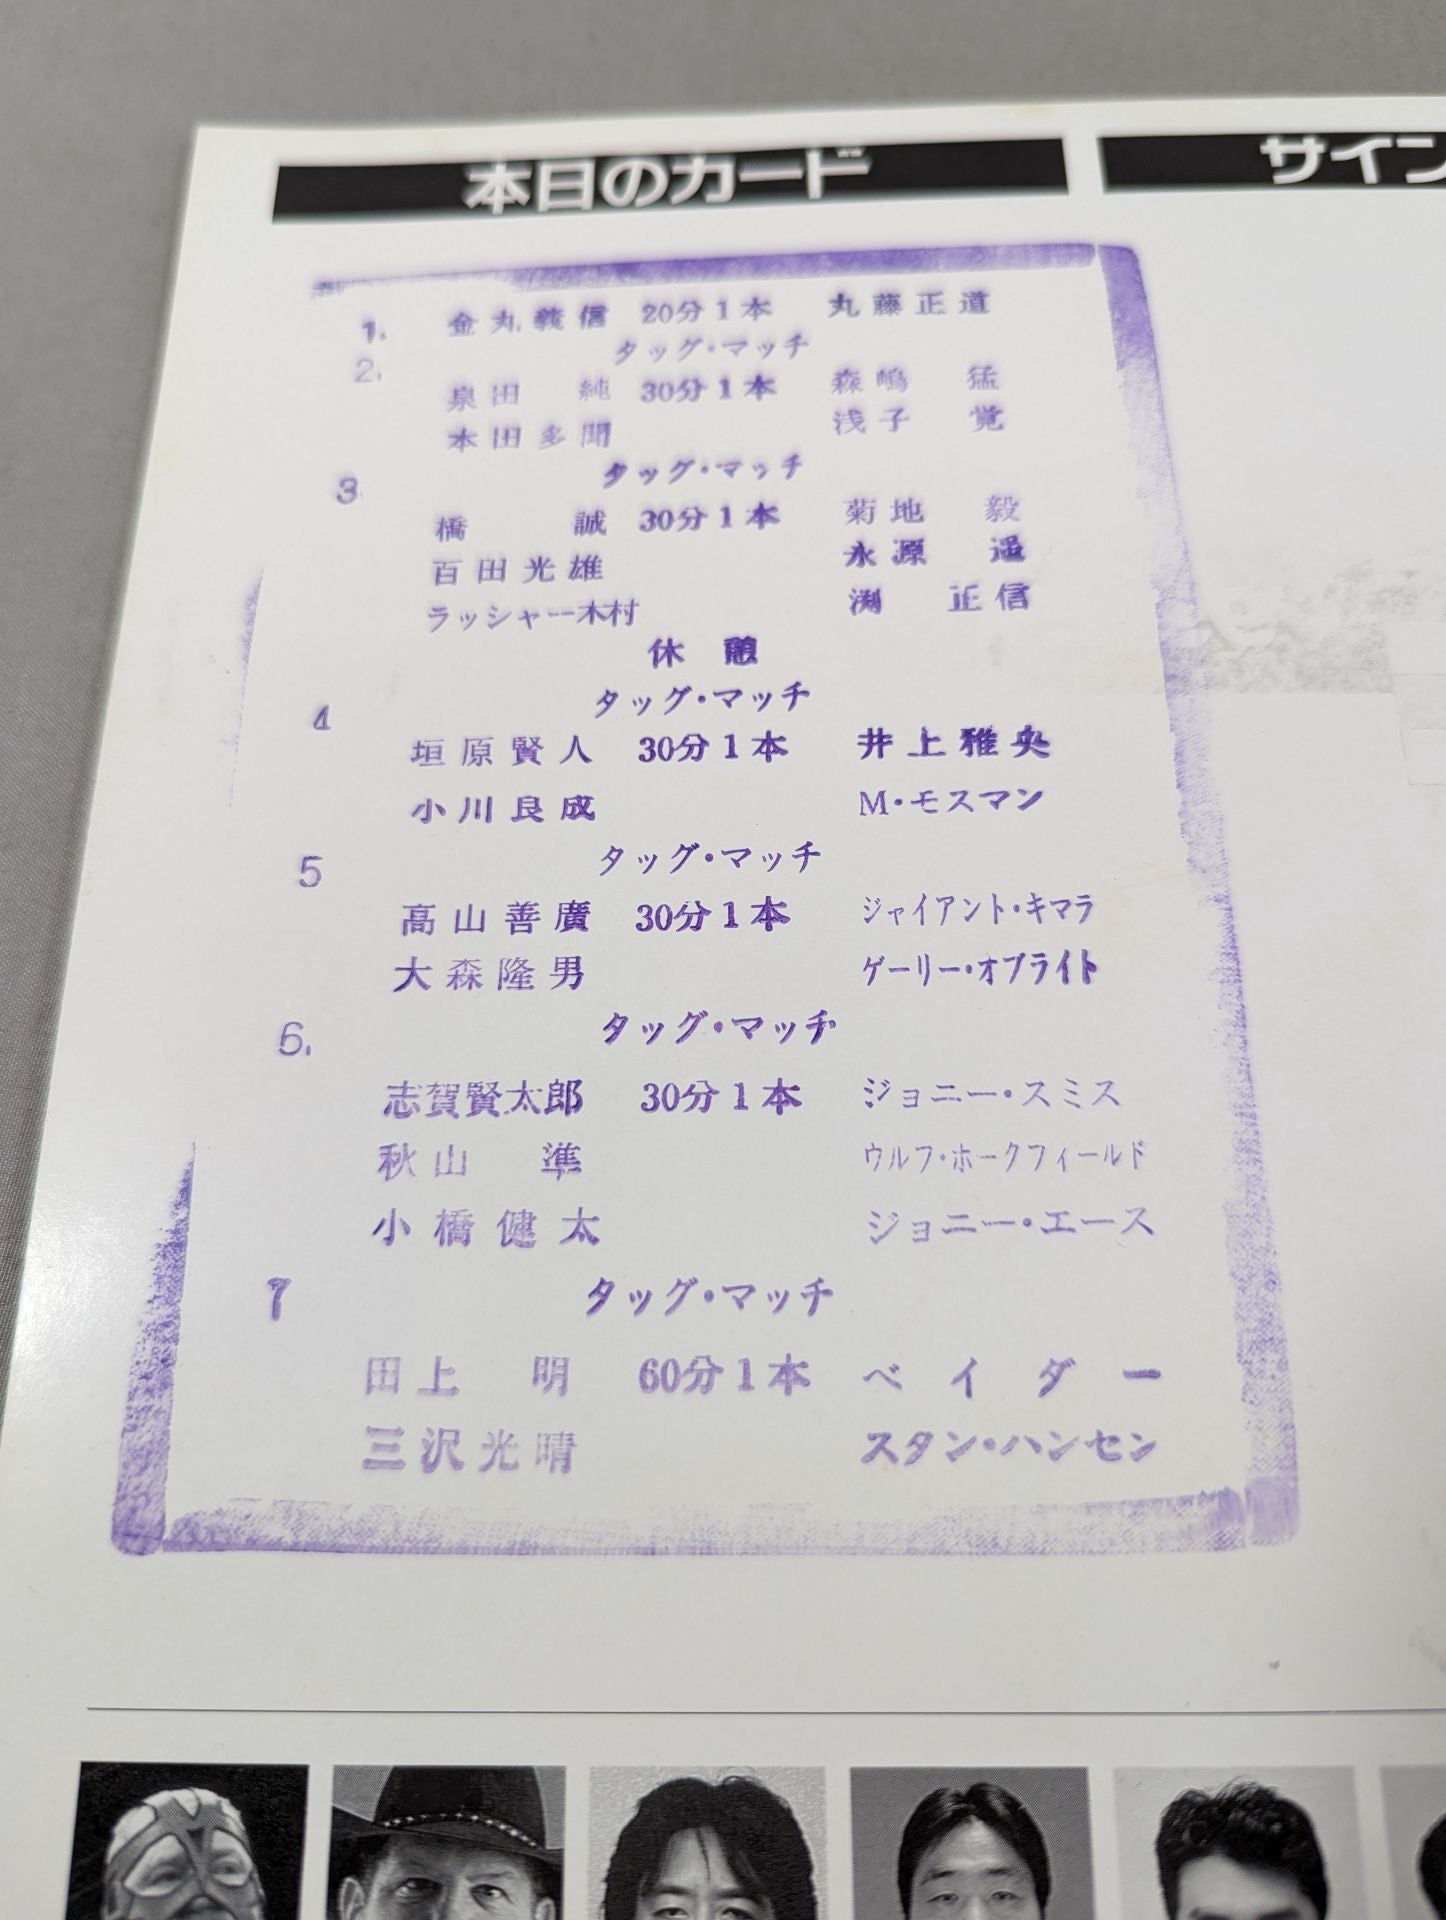 本日のカード
サイン
1. 金丸義信 20分1本 丸藤正道
2. タッグ・マッチ
泉田 純 30分1本 森嶋 猛
本田多聞 浅子 覚
3 タッグ・マッチ
橋 誠 30分1本 菊地 毅
百田光雄 永源 遥
ラッシャー木村 渕 正信
休憩
4 タッグ・マッチ
垣原賢人 30分1本 井上雅央
小川良成 M・モスマン
5 タッグ・マッチ
高山善廣 30分1本 ジャイアント・キマラ
大森隆男 ゲーリー・オブライト
6. タッグ・マッチ
志賀賢太郎 30分1本 ジョニー・スミス
秋山 準 ウルフ・ホークフィールド
小橋健太 ジョニー・エース
7 タッグ・マッチ
田上 明 60分1本 ベイダー
三沢光晴 スタン・ハンセン